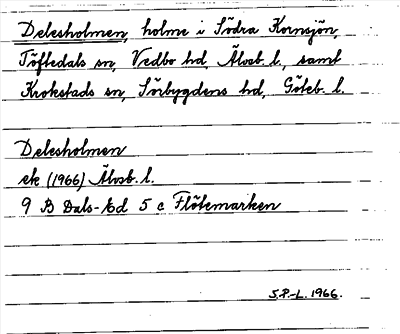 Delesholmen, holme i Södra Kornsjön,
Töftedals sn, Vedbo hd, Älvsb. l., samt
Krokstads sn, Sörbygdens hd, Göteb. l.
Delesholmen
ek (1966) Älvsb. l.
9 B Dals-Ed 5 c Flötemarken
S.P.-L. 1966.